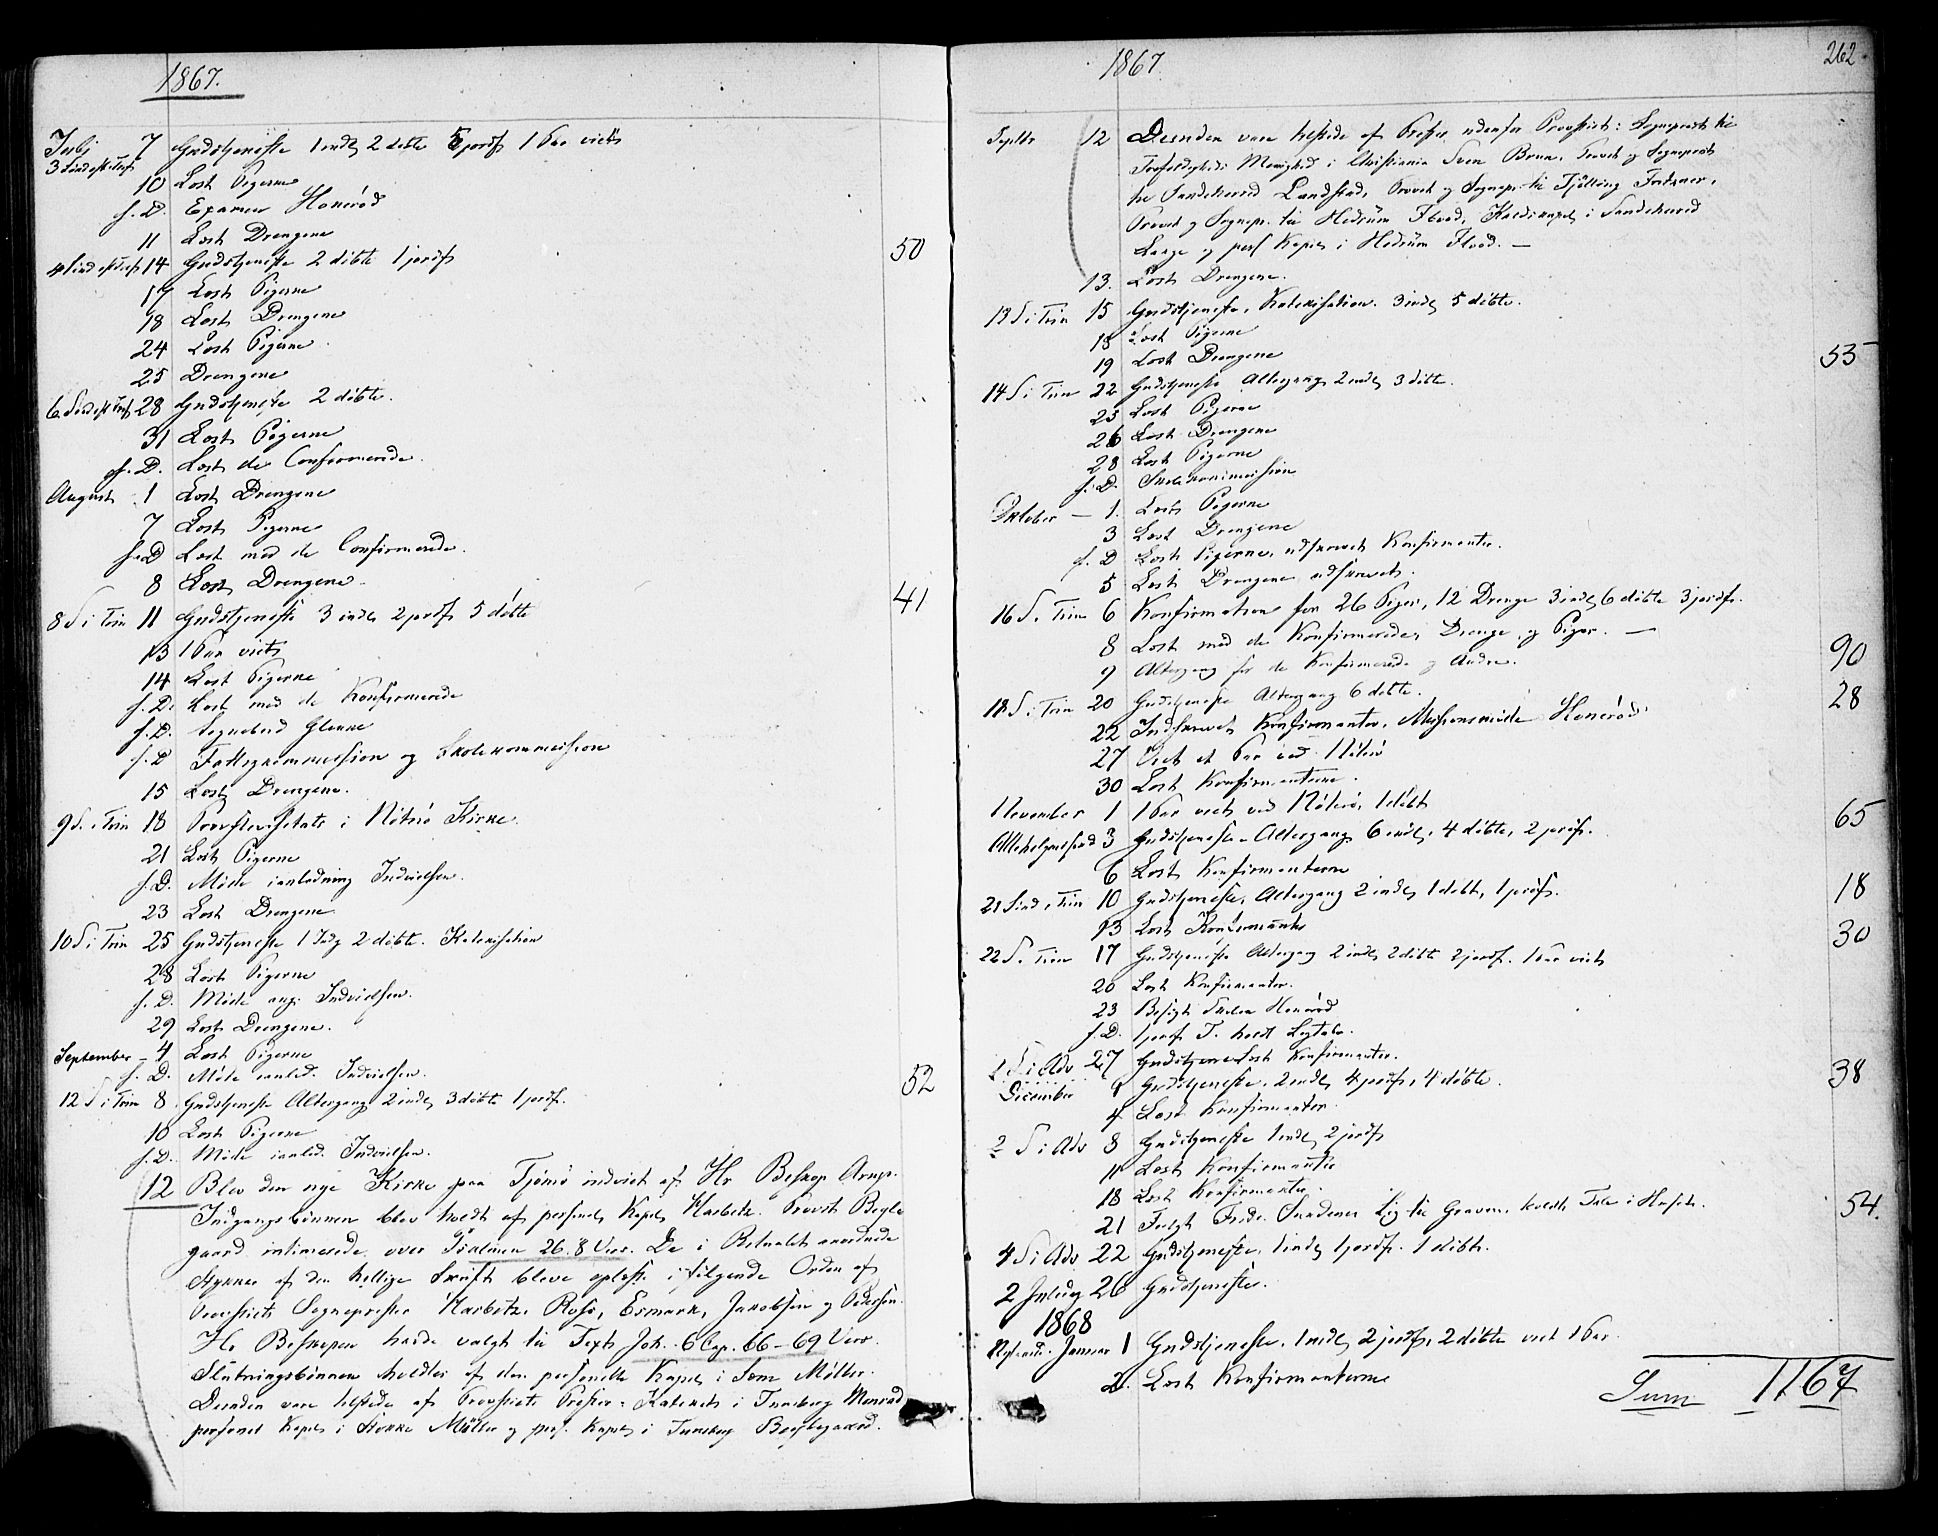 1867.
July 7 Gudstjeneste 1 indl 2 döbte 5 jordf 1 Par viets
3 Sönd eft Trinit
10 Læst Pigerne
s. D. Examen Höneröd
11 Læst Drengene
4 Sönd eft Trinit 14 Gudstjeneste 2 döbte 1 jordf 50
17 Læst Pigerne
18 Læst Drengene
24 Læst Pigerne
25 Drengene
6. Sönd eft Trinit 28 Gudstjeneste 2 döbte.
31 Læst Pigerne
s. D. Læst de Confirmerede.
August 1 Læst Drengene
7 Læst Pigerne
s. D Læst med de Confirmerede.
8 Læst Drengene. 41
8 S i Trin 11 Gudstjeneste 3 indl 2 jordf 5 döbte
13 1 Par viets
14 Læst Pigerne
s. D. Læst med de Konfirmerede
s. D. Sognebud Glenne
s. D Fattigkommission og Skolekommission
15 Læst Drengene.
9 S. i Trin 18 Provstevisitats i Nöterö Kirke.
21 Læst Pigerne
s. D. Möde i anledning Indvielsen.
23 Læst Drengene
10 S i Trin 25 Gudstjeneste 1 Indl 2 döbte. Katekisation
28 Læst Pigerne
s. D. Möde ang. Indvielsen.
29 Læst Drengene.
September - 4 Læst Pigerne
s. D. Möde i anled. Indvielsen. 52
12 S i Trin 8. Gudstjeneste Altergang 2 indl 3 döbte 1 jordf.
10 Læst Pigerne
s. D. Möde i anled. Indvielsen.
12 Blev den nye Kirke paa Tjömö indviet af Hr Biskop Arup.
Indgangsbönnen blev holdt af personel Kapel Harbitz. Provst Bugge
gaard intimerede over Psalmen 26. 8 Vers. De i Ritualet anordnede
Stykker af den hellige Skrift bleve oplæste i fölgende Orden af
Provstiets Sogneprester Harbitz, Ross, Esmark, Jakobsen og Pedersen.
Hr Biskopen havde valgt til Text Joh. 6 Cap. 66-69 Vers.
Slutningsbönnen holdtes af den personelle Kapel i Sem Möller.
Desuden vare tilstede af Provstiets Prester: Kateket i Tunsberg Monrad
personel Kapel i Stokke Müller og pers. Kapel i Tunsberg
1867 262.
Septbr 12 Desuden vare tilstede af Prester udenfor Provstiet: Sogneprest til
Trefoldigheds Menighed i Christiania Sven Brun, Provst og Sogneprest
til Sandeherred Landstad, Provst og Sognepr. til Tjölling Fritzner,
Provst og Sognepr. til Hedrum Flood, Residerende Kapel i Sandeherred
Lange og pers Kapel i Hedrum Flood. —
13. Læst Drengene.
13 S i Trin 15 Gudstjeneste, Katekisation. 3 indl 5 döbte.
18 Læst Pigerne
19 Læst Drengene 55
14 S i Trin 22 Gudstjeneste Altergang 2 indl 3 döbte.
25 Læst Pigerne
26 Læst Drengene
28 Læst Pigerne
s. D. Skolekommission
Oktober — 1. Læst Pigerne
3 Læst Drengene
s. D Læst Pigerne, udskrevet Konfirmanter.
5 Læst Drengene udskrevet.
16 S. i Trin 6 Konfirmation for 26 Piger, 12 Drenge 3 indl 6 döbte 3 jordf.
8 Læst med de Konfirmerede, Drenge og Piger. —
9 Altergang for de Konfirmerede og Andre. 90
18 S i Trin 20 Gudstjeneste Altergang 6 döbte. 28
22 Indskrevet Konfirmanter, Missionsmöde Hönerod
27 Viet et Par ved Nöterö
30 Læst Konfirmanterne.
November 1 1 Par viet ved Nöterö, 1 döbt
Allehelgensönd 3 Gudstjeneste. Altergang 6 indl, 4 döbte, 2 jordf. 65
6 Læst Konfirmanterne
21 Sönd i Trin 10 Gudstjeneste, Altergang 2 indl 1 döbt, 1 jordf. 18
13 Læst Konfirmanter
22 S. i Trin 17 Gudstjeneste Altergang 2 indl 2 döbte 2 jordf. 1 Par viets 30
20 Læst Konfirmanter.
23 Besögt Skolen Hönerod
s. D. 1 jordf T. holdt Ligtale.
1 S i Adv 27 Læst Konfirmanter.
December 1 Gudstjeneste. 2 indl 4 jordf, 4 döbte. 38
4 Læst Konfirmanter
2 S i Adv 8 Gudstjeneste 1 indl 2 jordf
11 Læst Konfirmanter
18 Læst Konfirmanter.
21 Fulgt Fredr. Sundenes Lig til Graven, holdt Tale i Huset. 54.
4 S i Adv 22 Gudstjeneste, 1 indl 1 jordf. 1 döbt.
2 Juledag 26 Gudstjeneste.
1868
Nytaarsd. Januar 1 Gudstjeneste, 1 indl 2 jordf, 2 döbte viet 1 Par
2. Læst Konfirmanterne
Sum 1167